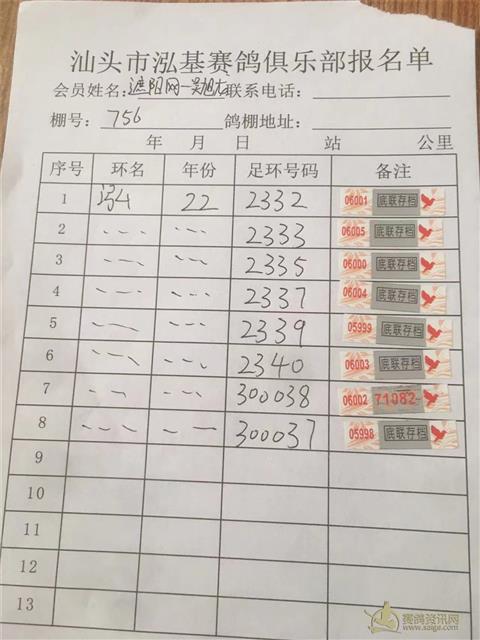 汕头市泓基赛鸽俱乐部报名单
会员姓名:遮阳网一吴旭龙联系电话:
棚号: 756 鸽棚地址:
年 月 日 站 公里
序号 环名 年份 足环号码 备注
1 22 2332 06001 底联存档
2 2333 06005 底联存档
3 2335 06000 底联存档
4 2337 06004 底联存档
5 2339 05999 底联存档
6 2340 06003 底联存档
7 300038 06002 71082
8 300037 05998 底联存档
9
10
11
12
13
赛鸽资讯网
www.saige.com